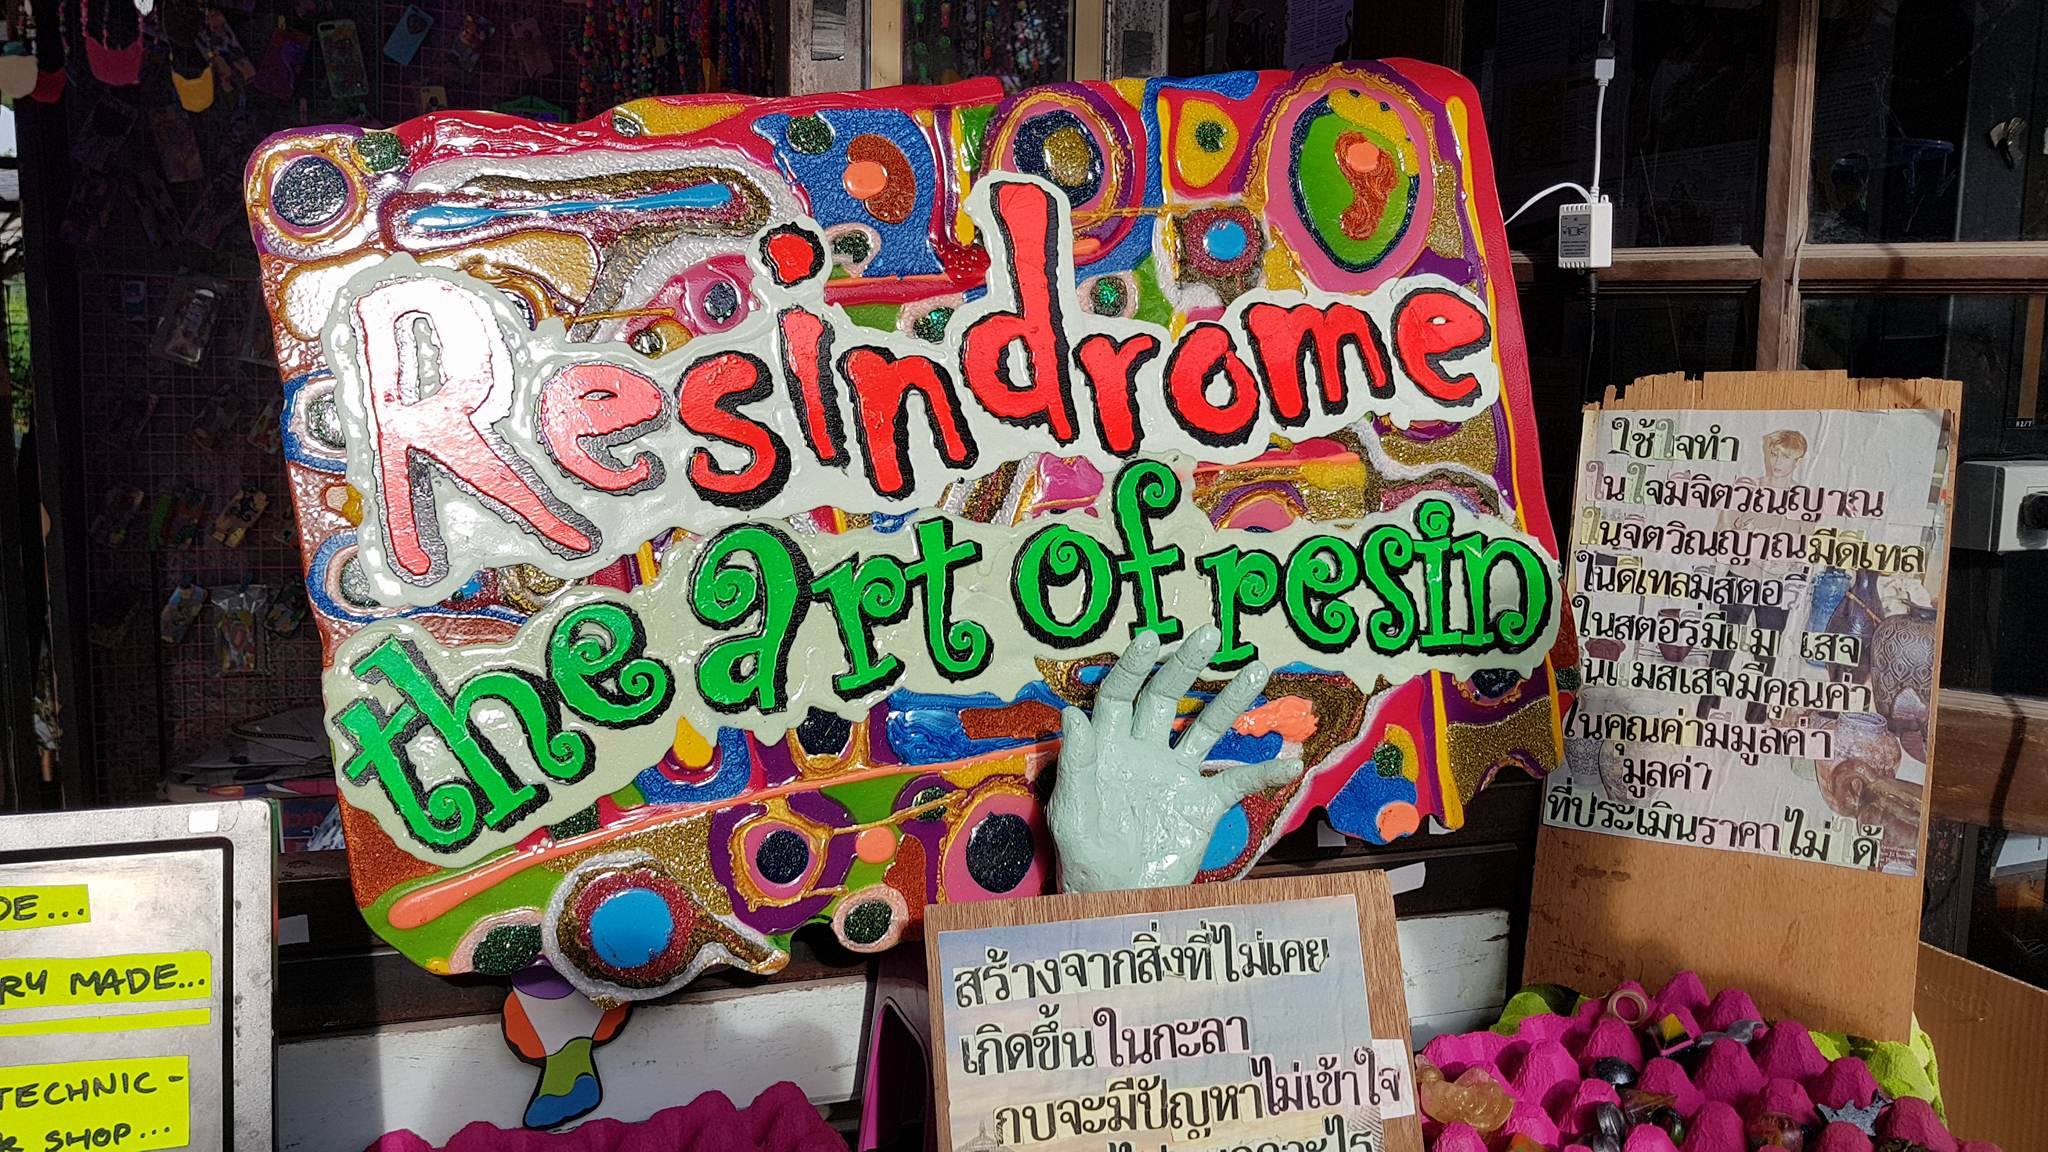 Resindrome
the art of resin
ใช้ใจทำ
ในใจมีจิตวิณญาณ
ในจิตวิณญาณมีดีเทล
ในดีเทลมีสตอรี่
ในสตอรี่มีแม เสจ
ในแมสเสจมีคุณค่า
ในคุณค่ามีมูลค่า
มูลค่า
ที่ประเมินราคาไม่ ได้
สร้างจากสิ่งที่ไม่เคย
เกิดขึ้นในกะลา
กบจะมีปัญหาไม่เข้าใจ
DE...
RY MADE...
TECHNIC -
R SHOP...